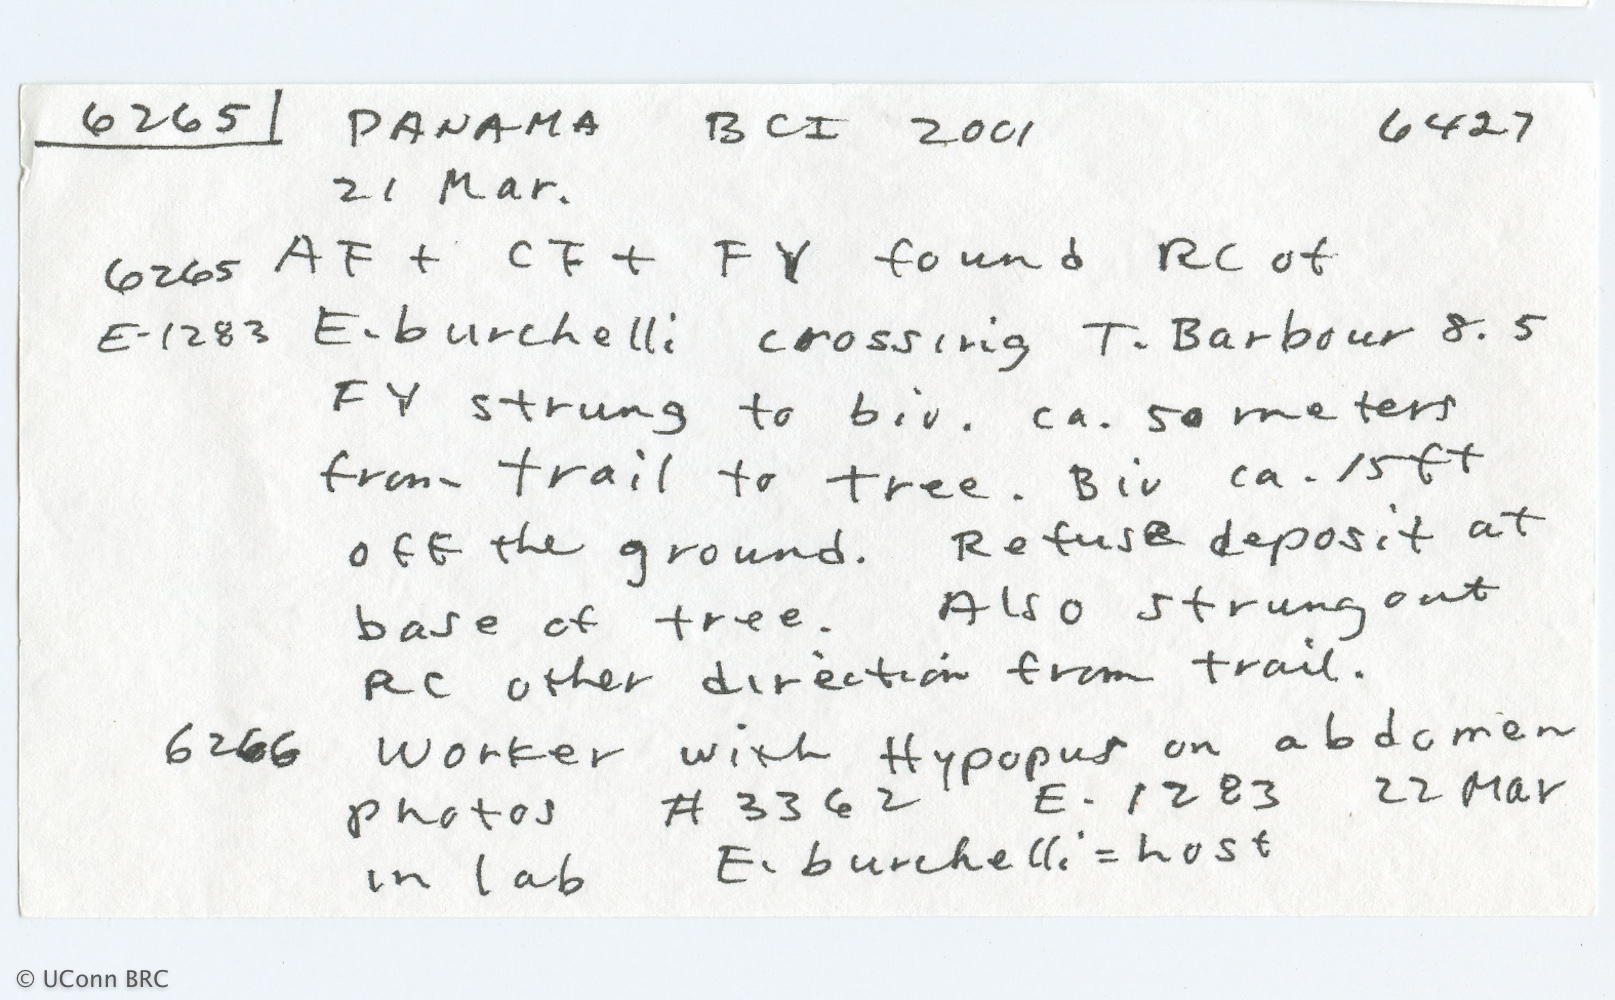 6265 PANAMA BCI 2001 6427
21 Mar.
6265 AF + CF + FY found RC of
E-1283 E. burchelli crossing T. Barbour 8.5
FY strung to biv. ca. 50 meters
from trail to tree. Biv ca. 15 ft
off the ground. Refuse deposit at
base of tree. Also strung out
RC other direction from trail.
6266 Worker with Hypopus on abdomen
photos # 3362 E-1283 22 Mar
in lab E. burchelli = host
© UConn BRC